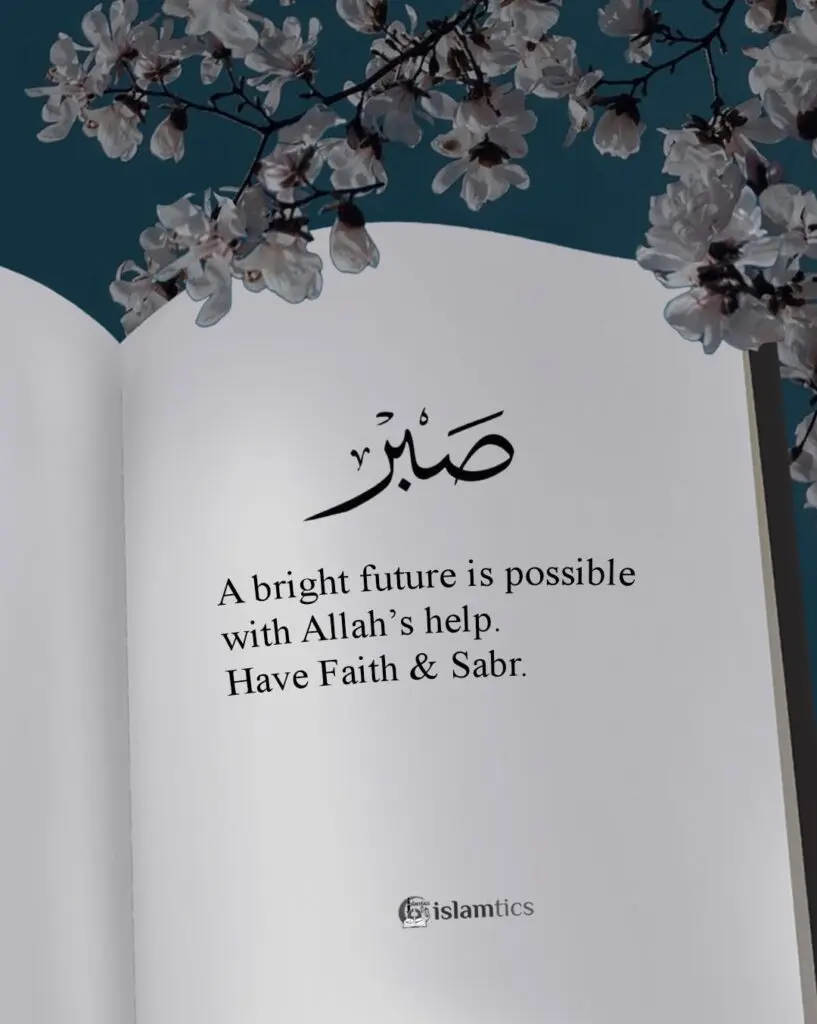 صَبْرٌ
A bright future is possible
with Allah’s help.
Have Faith & Sabr.
islamtics